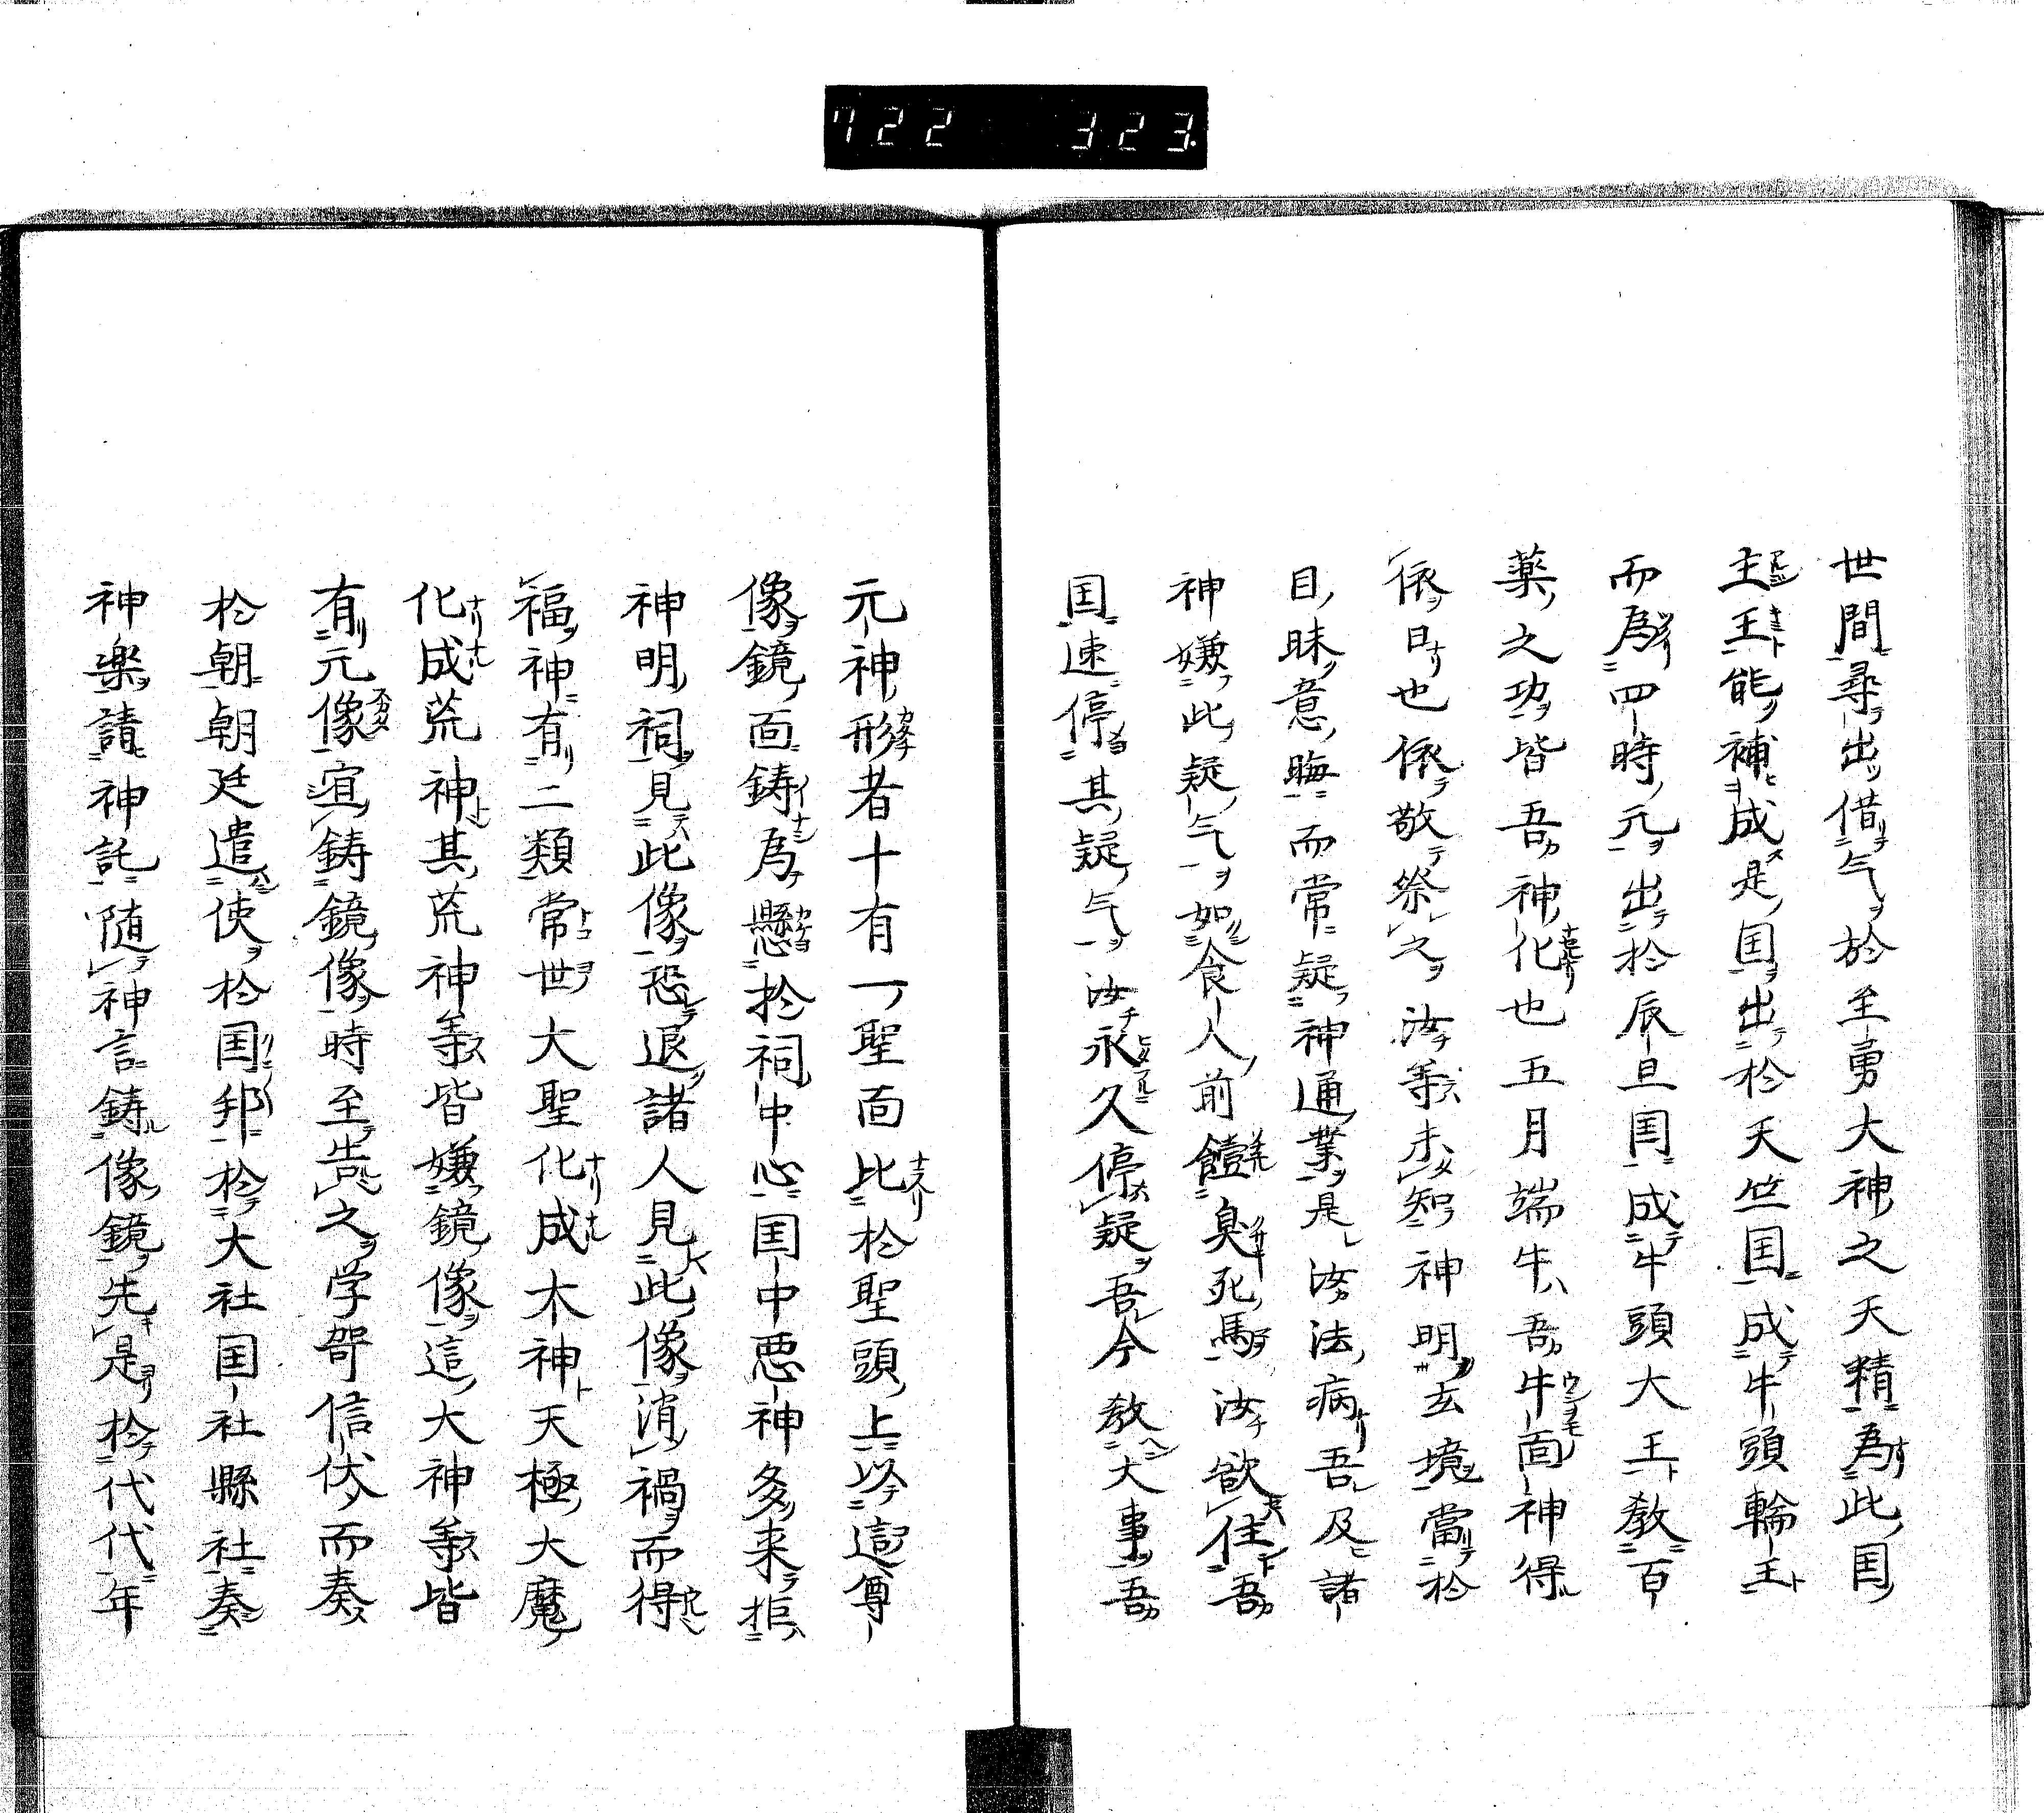 722 323
世間尋出借气於至勇大神之天精為此国
主王能補成是国出於天竺国成牛頭輪王
而為四時元出於辰旦国成牛頭大王教百
薬之功皆吾神化也五月端牛吾牛面神得
依日也依敬祭之汝等未智神明玄境當於
目昧意晦而常疑神通業是汝法病吾及諸
神嫌此疑气如食人前饐臭死馬汝欲住吾
国速停其疑气汝永久停疑吾今教大事吾
元神形者十有一聖面比於聖頭上以這尊
像鏡面鋳為懸於祠中心国中悪神多来拒
神明祠見此像恐退諸人見此像消禍而得
福神有二類常世大聖化成木神天極大魔
化成荒神其荒神等皆嫌鏡像這大神等皆
有元像宜鋳鏡像時至告之学哿信伏而奏
於朝朝廷遣使於国邦於大社国社縣社奏
神楽請神託随神言鋳像鏡先是於代代年